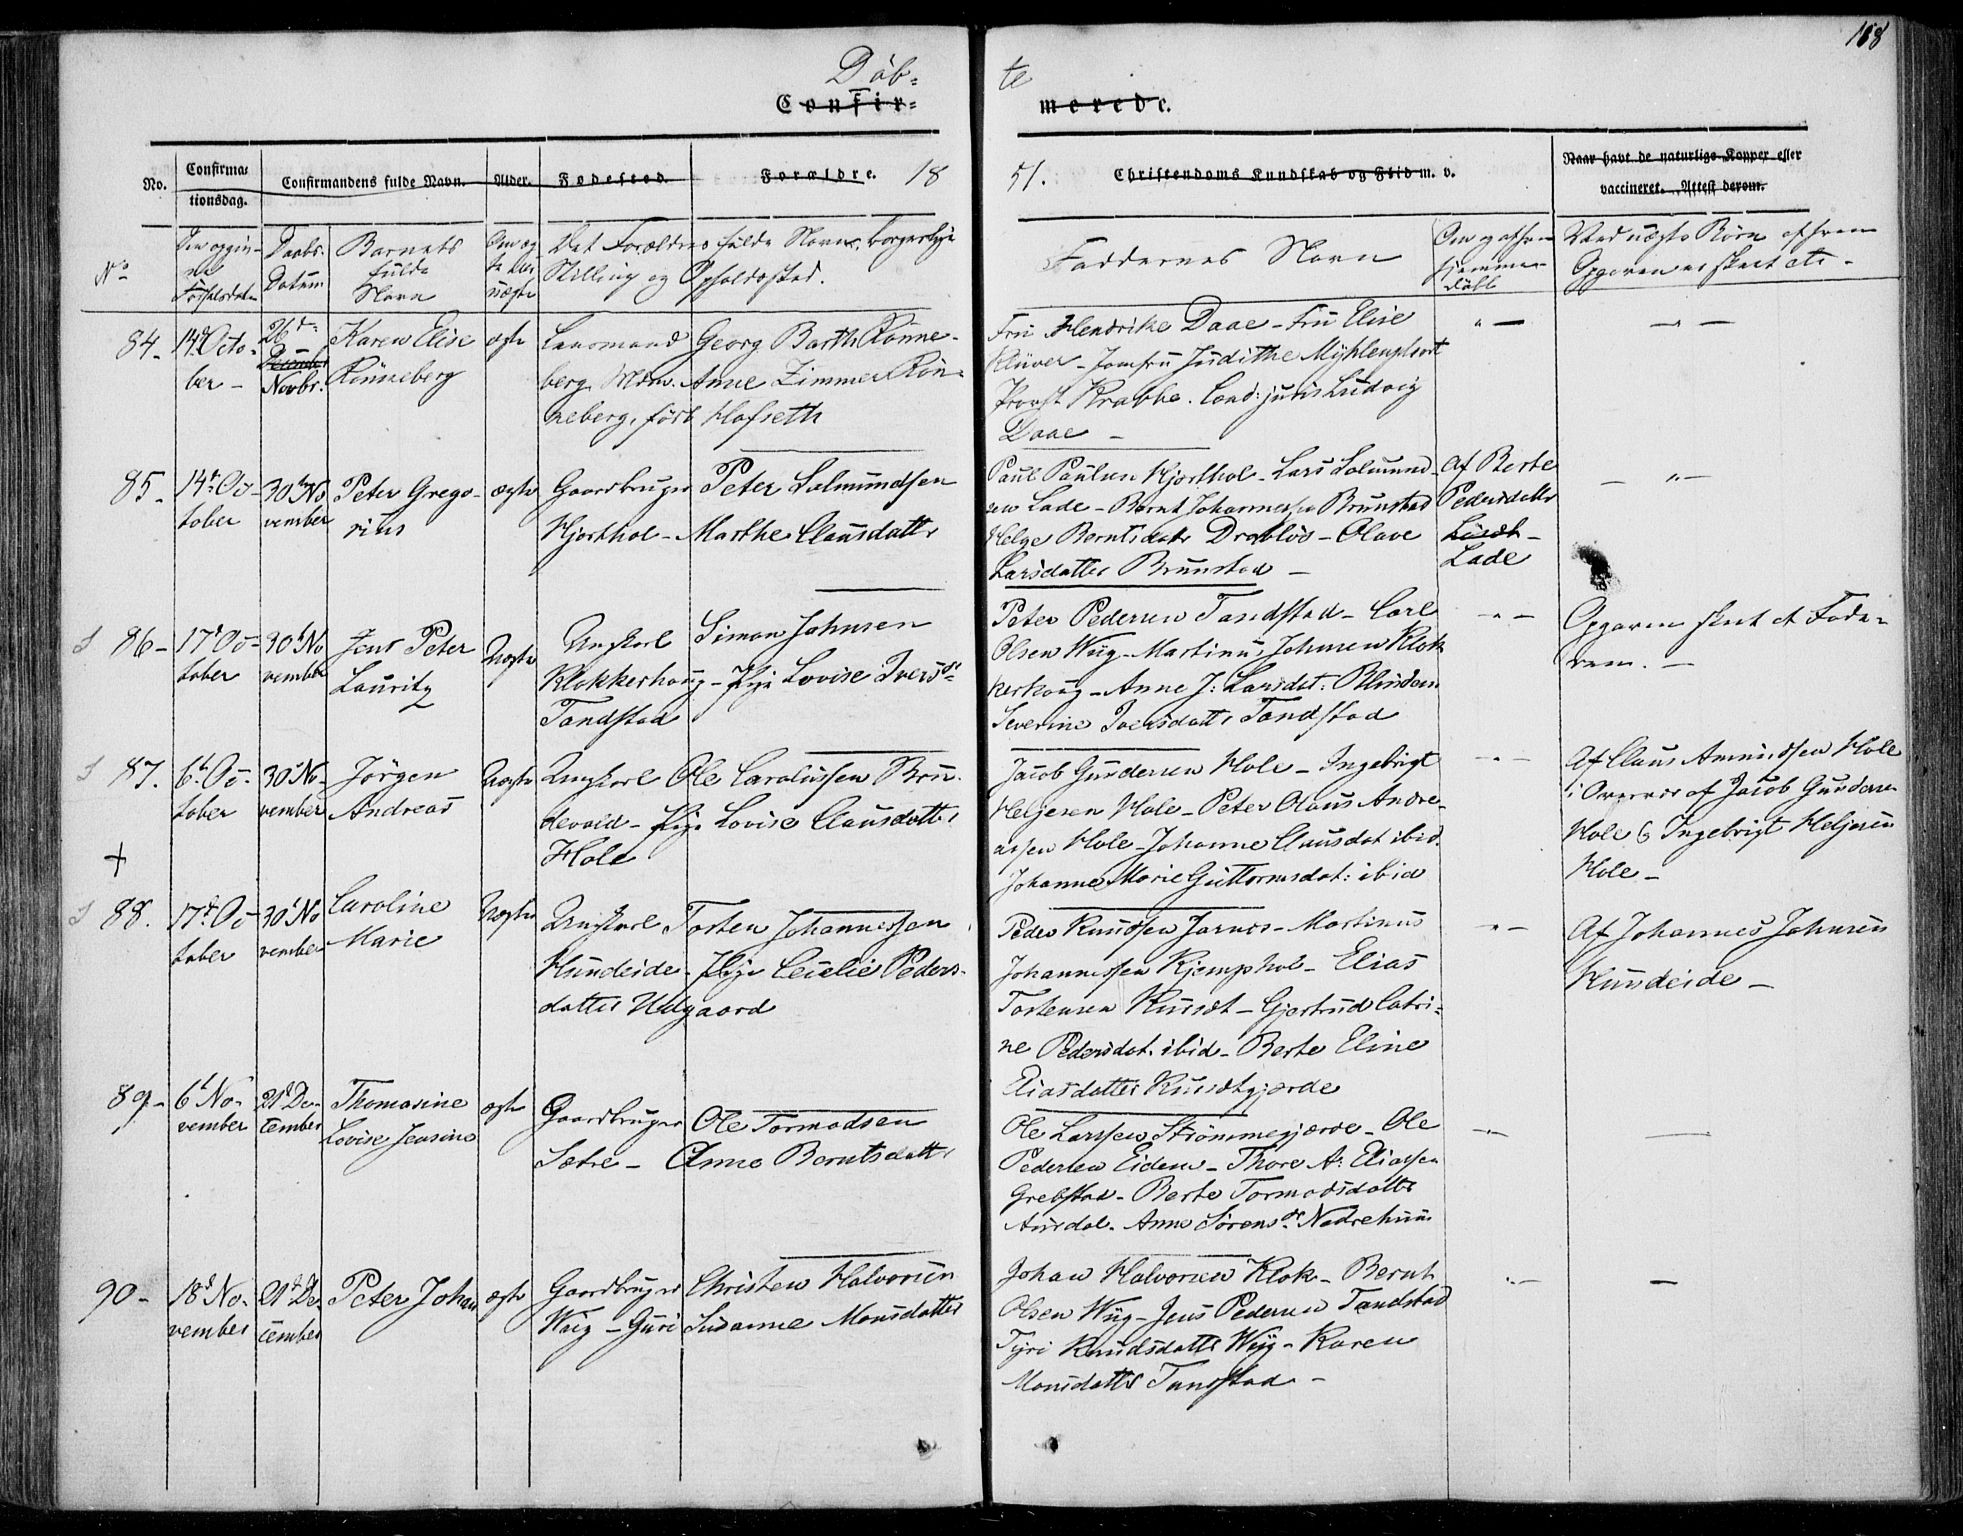 168
Døb=
te
Confir=
merede.
No.
Confirma=
tionsdag.
Confirmandens fulde Navn.
Alder.
Fødested.
Forældre.
18
51.
Christendoms Kundskab og Flid m. v.
Naar havt de naturlige Kopper eller
vaccineret. Attest derom.
No
Den opgiv-
ne
Fødselsdat.
Daabs-
Datum
Barnets
fulde
Navn
Om æg-
te eller
uægte
Det Forældres fulde Navn, borgerlige
Stilling og Opholdssted.
Faddernes Navn
Om
hjemme-
døbt
Ved uægte Børn af hvem
Opgaven er skeet etc -
84-
14d Octo-
ber -
26d
December
Novbr.
Karen Elise
Rönneberg
ægte
Lensmand Georg Barth Rönne-
berg Mdm. Anne Zimmer Rön-
neberg, født Hofseth
Fru Hendrike Daae - Fru Elise
Klüver - Jomfru Judithe Mÿhlenphort
Provst Krabbe. Cand: juris Ludvig
Daae -
85-
14d Oc-
tober
30d No
vember
Peter Grego-
rius
ægte
Gaardbruger Peter Salmundsen
Hjorthol - Marthe Clausdatter
Paul Paulsen Hjorthol - Lars Salmund-
sen Lade - Bernt Johannessen Brunstad
Helge Berntsdatr Drabløs - Olave
Larsdatter Brunstad -
Af Berte
Pedersdatter
Lade
86-
17d Oc-
tober
30d No
vember
Jens Peter
Lauritz
Uægte
Ungkarl Simon Johnsen
Klokkerhoug - Pige Lovise Iversdr
Tandstad
Peter Pedersen Tandstad - Carl
Olsen Wiig - Martinus Johnsen Klok
kerhoug - Anne J: Larsdat: Blindem
Severine Iversdatter Tandstad
Opgaven skeet af Fade-
ren. -
87.
6d Oc-
tober
30d No-
vember
Jørgen
Andreas
Uægte
Ungkarl Ole Carolussen Bru-
devold - Pige Lovise Clausdatter
Hole
Jacob Gundersen Hole - Ingebrigt
Heljesen Hole - Peter Olaus Andre-
assen Hole - Johanne Clausdat ibid.
Johanne Marie Guttormsdat: ibid
Af Claus Amundsen Hole
i Overvær af Jacob Gunderse
Hole & Ingebrigt Heljesen
Hole -
+
88.
17d Oc-
tober
30d No
vember
Caroline
Marie
Uægte
Ungkarl Torsten Johannessen
Hundeide - Pige Cecilie Peders-
datter Uelgaard
Peder Knudsen Jarnes - Martinus
Johannessen Kjemphol - Elias
Torstensen Ruusdt - Gjertrud Catri-
ne Pedersdat. ibid - Berte Eline
Eliasdatter
Af Johannes Johnsen
Hundeide -
89-
6d No-
vember
21d De-
cember
Thomasine
Lovise Jensine
ægte
Gaardbruger Ole Tormodsen
Sætre - Anne Berntsdatter
Ole Larssen Strømmegjærde - Ole
Pedersen Eidem - Thore A: Eliassen
Grebstad - Berte Tormodsdatter
Aursdal - Anne Sörensdr Nedrehuus
90-
18d No-
vember
21d De
cember
Peter Johan
ægte
Gaardbruger Christen Halvorsen
Wiig - Guri Susanne Monsdatter
Johan Halvorsen Klok - Bernt
Olsen Wiig - Jens Pedersen Tandstad
Tyri Knudsdatter Wiig - Karen
Monsdatter Tandstad -